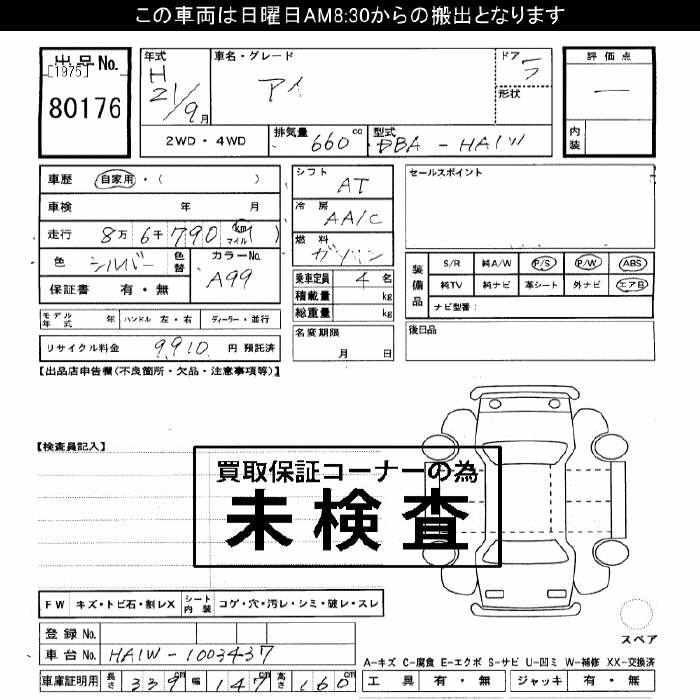 この車両は日曜日AM8:30からの搬出となります
出品No.
[1975]
80176
年式
H
21/9月
車名・グレード
アイ
ドア
5
形状
評価点
—
内装
2WD・4WD
排気量 660 cc
型式 DBA-HA1W
車歴 自家用・( )
車検 年 月
走行 8万6千790 km マイル ( )
色 シルバー 色替
カラーNo. A99
保証書 有・無
モデル年式 年
ハンドル 左・右
ディーラー・並行
リサイクル料金 9,910 円 預託済
シフト AT
冷房 AA/C
燃料 ガソリン
乗車定員 4 名
積載量 kg
総重量 kg
名変期限
月 日
セールスポイント
装備品
S/R 純A/W P/S P/W ABS
純TV 純ナビ 革シート 外ナビ エアB
ナビ型番:
後日品
【出品店申告欄(不良箇所・欠品・注意事項等)】
【検査員記入】
買取保証コーナーの為
未検査
FW キズ・トビ石・割レX
シート内装 コゲ・穴・汚レ・シミ・破レ・スレ
登録No.
車台No. HA1W-1003437
スペア
A-キズ C-腐食 E-エクボ S-サビ U-凹ミ W-補修 XX-交換済
車庫証明用 長さ 339cm 幅 147cm 高さ 160cm
工具 有・無 ジャッキ 有・無